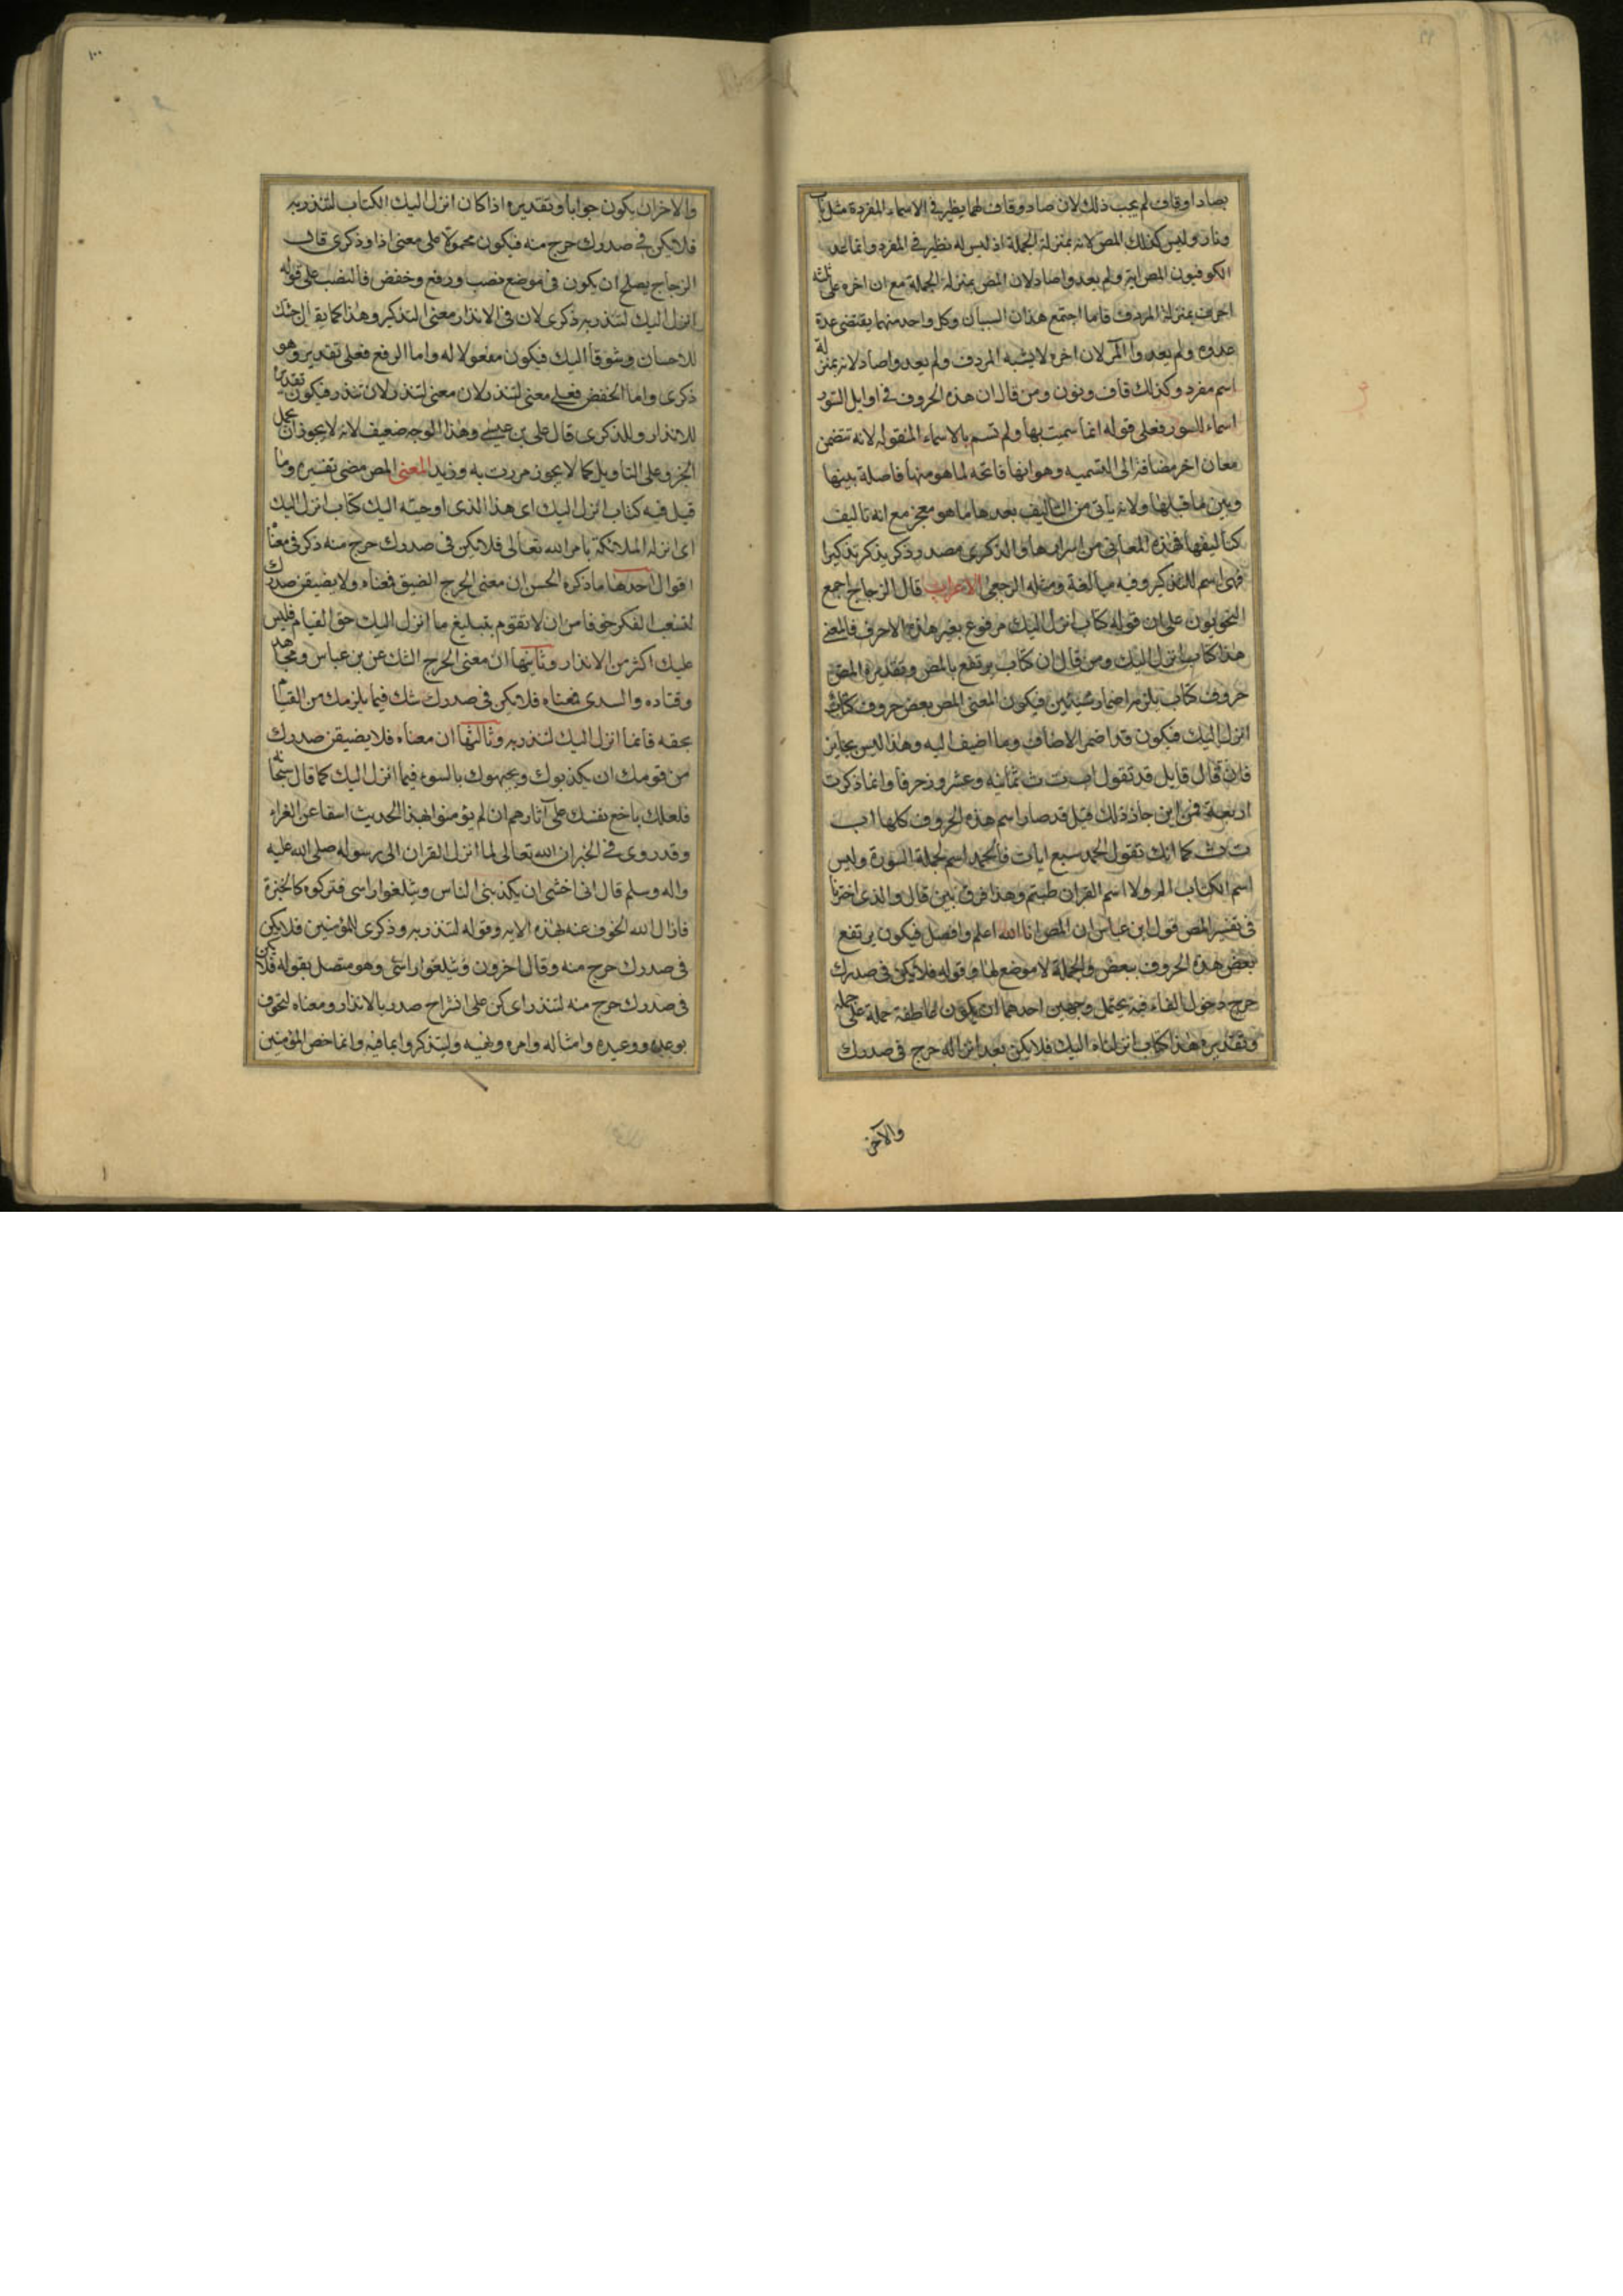 ٩٩
بصاد او قاف لم يجب ذلك لان صاد وقاف لهما نظير فى الاسماء المفردة مثل باب
ونار وليس كذلك المص لانه بمنزلة الجملة اذ ليس له نظير فى المفرد وانما عد
الكوفيون المص اية ولم يعدوا صاد لان المص بمنزلة الجملة مع ان اخره على ثلثة
احرف بمنزلة المردف فلما اجتمع هذان السببان وكل واحد منهما يقتضى عدة
عدوه ولم يعدوا المر لان اخره لا يشبه المردف ولم يعدوا صاد لانه بمنزلة
اسم مفرد وكذلك قاف ونون ومن قال ان هذه الحروف فى اوايل السور
اسماء للسور فعلى قوله انما سميت بها ولم تسم بالاسماء المنقولة لانه تتضمن
معان اخر مضافة الى التسميه وهو انها فاتحه لما هو منها فاصلة بينها
وبين ما قبلها ولانه ياتى من التاليف بعدها ما هو معجز مع انه تاليف
كتاليفها فهذه المعانى من اسرارها والذكرى مصدر ذكر يذكر تذكيرا
فهى اسم للتذكير وفيه مبالغة ومثله الرجعى الاعراب قال الزجاج اجمع
النحويون على ان قوله كتاب انزل اليك مرفوع بغير هذه الاحرف فالمعنى
هذا كتاب انزل اليك ومن قال ان كتاب يرتفع بالمص وتقديره المص
حروف كتاب يلزمه اضمار شيئين فيكون المعنى المص بعض حروف كتاب
انزل اليك فيكون قد اضمر الاضاف وما اضيف اليه وهذا ليس بجايز
فان قال قايل قد تقول ا ب ت ث ثمانيه وعشرون حرفا وانما ذكرت
اربعة فمن اين جاز ذلك قيل قد صار اسم هذه الحروف كلها ا ب
ت ث كما انك تقول الحمد سبع ايات فالحمد اسم لجملة السورة وليس
اسم الكتاب الم ولا اسم القران طسم وهذا فرق بين قال والذى اخترنا
فى تفسير المص قول ابن عباس ان المص انا الله اعلم وافصل فيكون يرتفع
بعض هذه الحروف ببعض والجملة لا موضع لها وقوله فلا يكن فى صدرك
حرج دخول الفاء فيه يحتمل وجهين احدهما ان يكون عاطفة جملة على جمله
وتقديره هذا كتاب انزلناه اليك فلا يكن بعد انزاله حرج فى صدرك
والآخر
١٠٠
والاخر ان يكون جوابا وتقديره اذا كان انزل اليك الكتاب لتنذر به
فلا يكن فى صدرك حرج منه فيكون محمولا على معنى اذا وذكرى قال
الزجاج يصلح ان يكون فى موضع نصب ورفع وخفض فالنصب على قوله
انزل اليك لتنذر به ذكرى لان فى الانذار معنى التذكير وهذا كما يقال جئتك
للاحسان وشوقا اليك فيكون مفعولا له واما الرفع فعلى تقدير وهو
ذكرى واما الخفض فعلى معنى لتنذر لان معنى لتنذر لان تنذر فيكون تقديره
للانذار وللذكرى قال على بن عيسى وهذا الوجه ضعيف لانه لا يجوز ان يحمل
الجر على التاويل كما لا يجوز مررت به وزيد المعنى المص مضى تفسيره وما
قيل فيه كتاب انزل اليك اى هذا الذى اوحيته اليك كتاب انزل اليك
اى انزله الملائكة بامر الله تعالى فلا يكن فى صدرك حرج منه ذكر فى معناه
اقوال احدها ما ذكره الحسن ان معنى الحرج الضيق فمعناه ولا يضيقن صدرك
لتشعب الفكر خوفا من ان لا تقوم بتبليغ ما انزل اليك حق القيام فليس
عليك اكثر من الانذار وثانيها ان معنى الحرج الشك عن بن عباس ومجاهد
وقتاده والسدى فمعناه فلا يكن فى صدرك شك فيما يلزمك من القيام
بحقه فانما انزل اليك لتنذر به وثالثها ان معناه فلا يضيقن صدرك
من قومك ان يكذبوك ويجبهوك بالسوء فيما انزل اليك كما قال سبحانه
فلعلك باخع نفسك على آثارهم ان لم يؤمنوا بهذا الحديث اسفا عن الفراء
وقد روى فى الخبر ان الله تعالى لما انزل القران الى رسوله صلى الله عليه
واله وسلم قال انى اخشى ان يكذبنى الناس ويثلغوا راسى فتركوه كالخبزة
فازال الله الخوف عنه بهذه الايه وقوله لتنذر به وذكرى للمؤمنين فلا يكن
فى صدرك حرج منه وقال اخرون ويثلغوا راسى وهو متصل بقوله فلا يكن
فى صدرك حرج منه لتنذر اى كن على انشراح صدر بالانذار ومعناه لتخوف
بوعده ووعيده وامثاله وامره ونهيه وليتذكروا بما فيه وانما خص المؤمنين